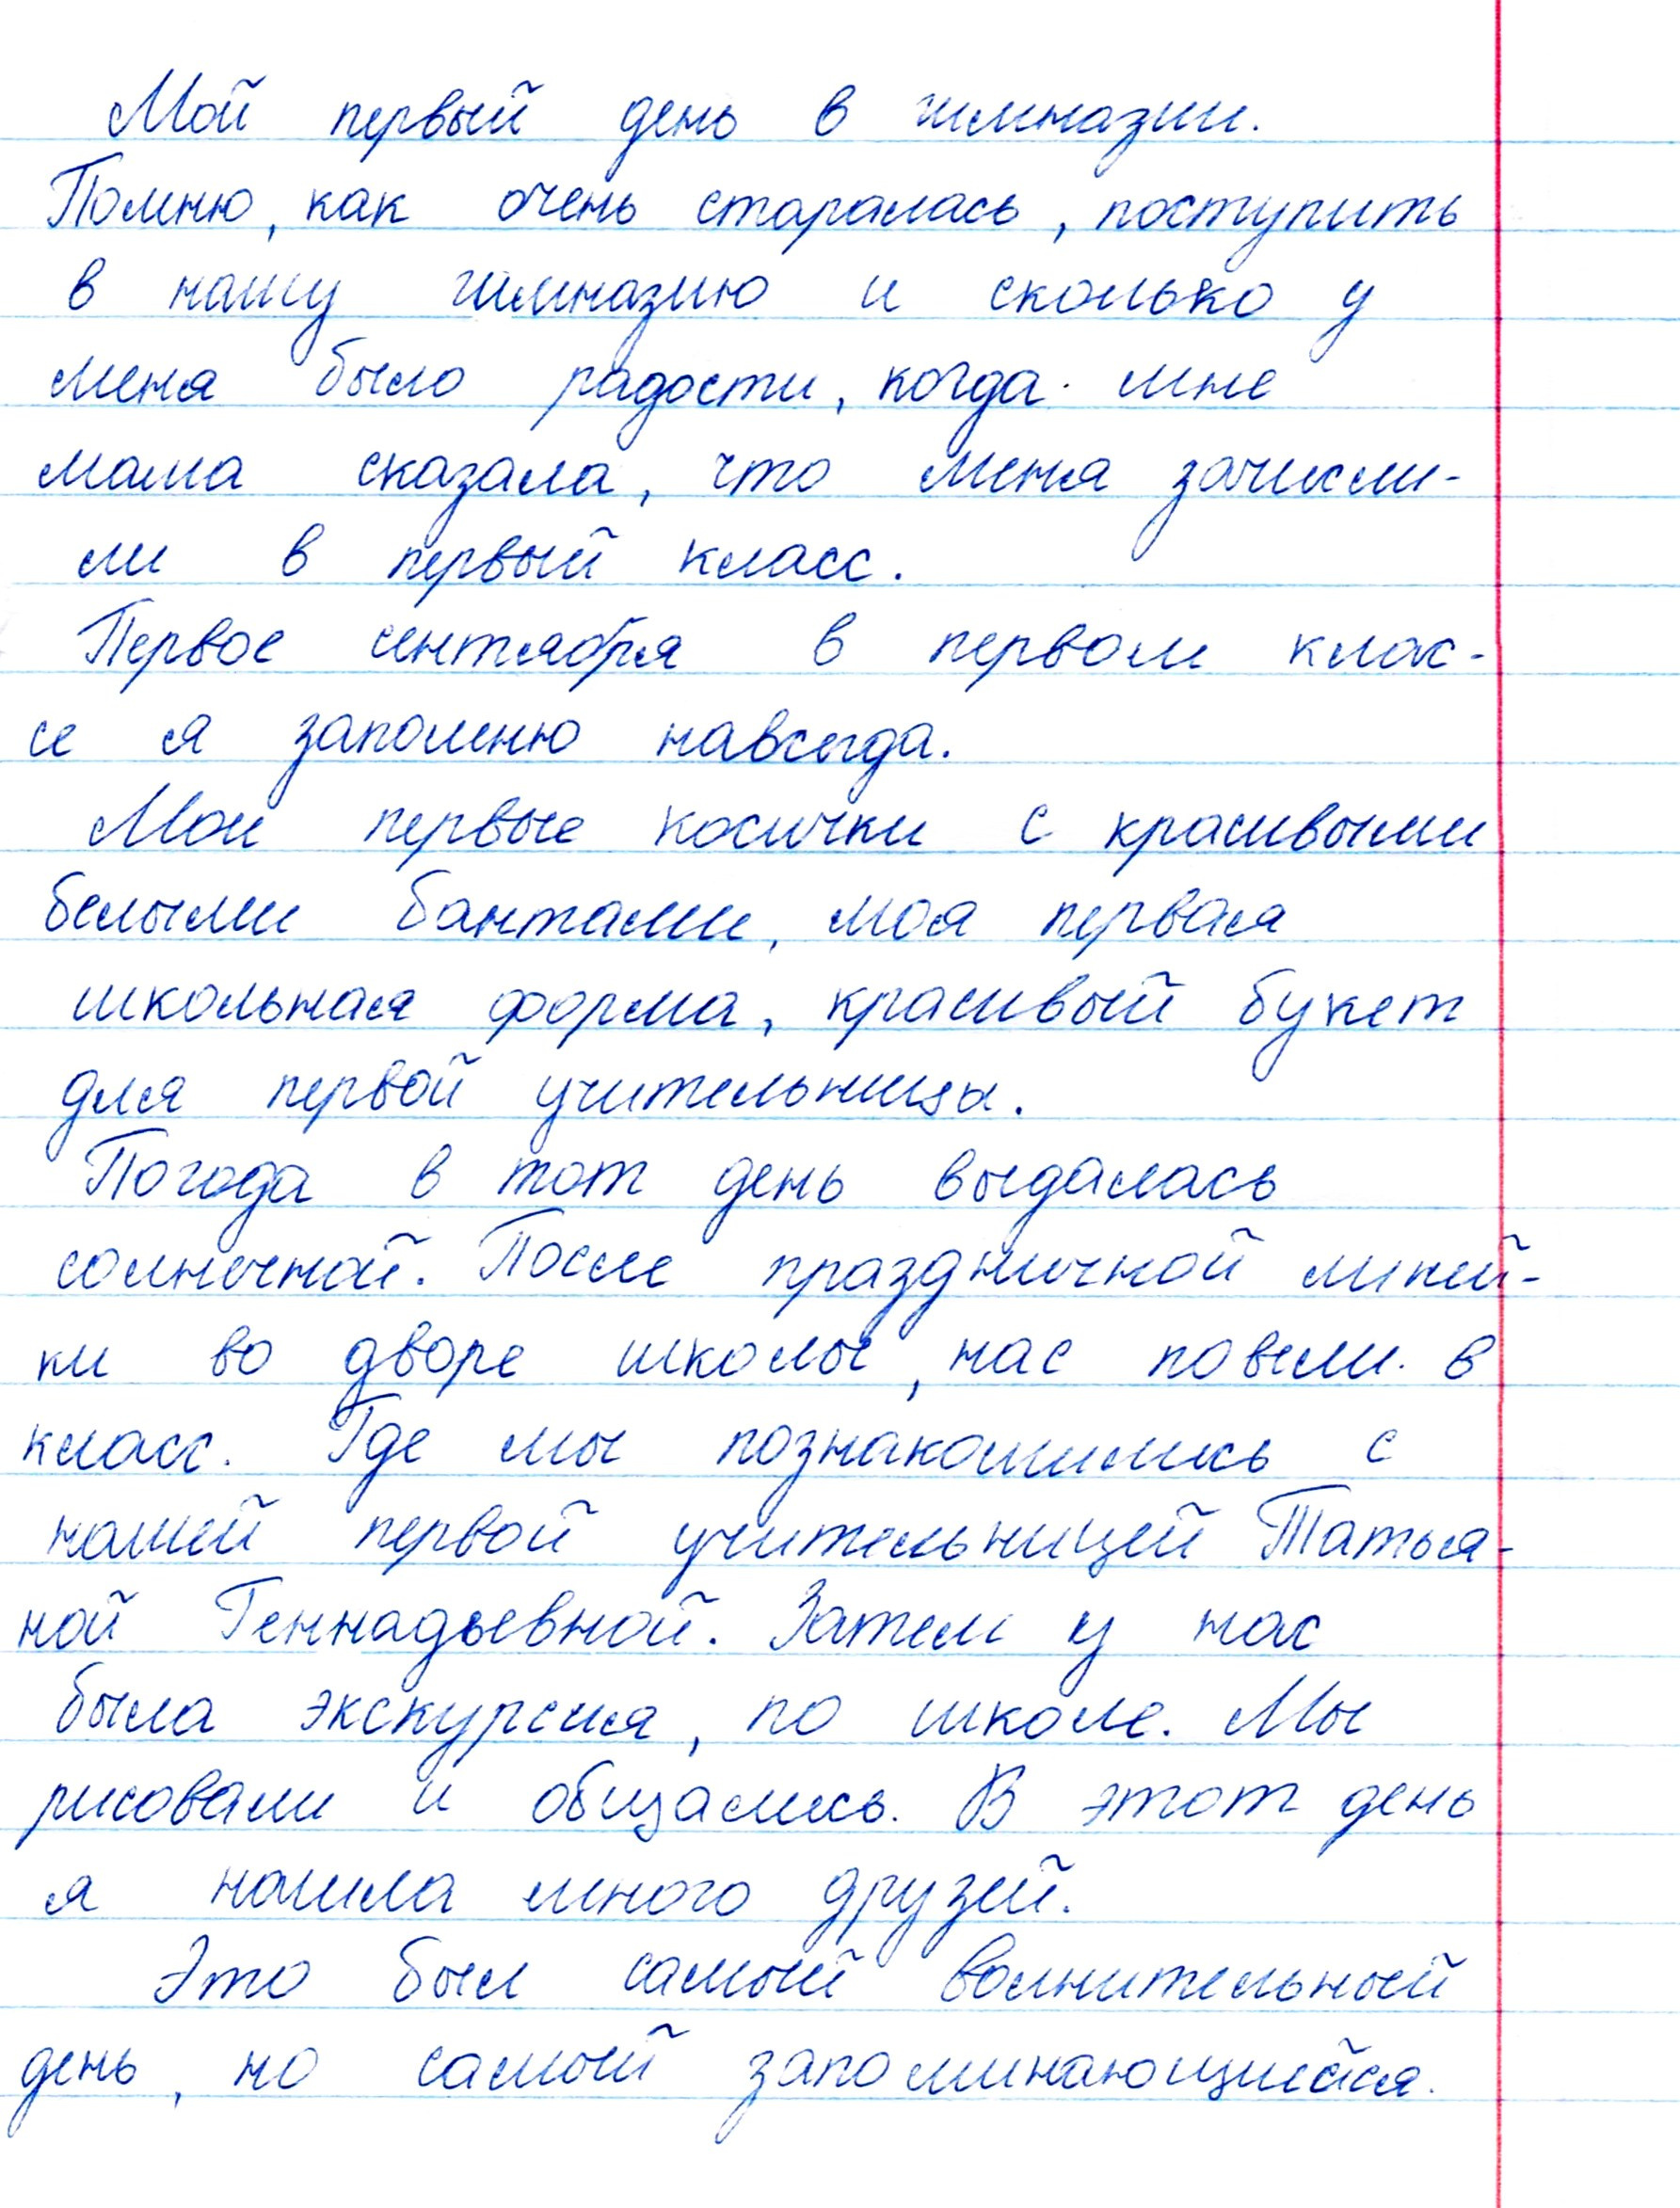 Мой первый день в гимназии.
Помню, как очень старалась, поступить
в нашу гимназию и сколько у
меня было радости, когда мне
мама сказала, что меня зачисли-
ли в первый класс.
Первое сентября в первом клас-
се я запомню навсегда.
Мои первые косички с красивыми
белыми бантами, моя первая
школьная форма, красивый букет
для первой учительницы.
Погода в тот день выдалась
солнечной. После праздничной линей-
ки во дворе школы, нас повели в
класс. Где мы познакомились с
нашей первой учительницей Татья-
ной Геннадьевной. Затем у нас
была экскурсия, по школе. Мы
рисовали и общались. В этот день
я нашла много друзей.
Это был самый волнительный
день, но самый запоминающийся.